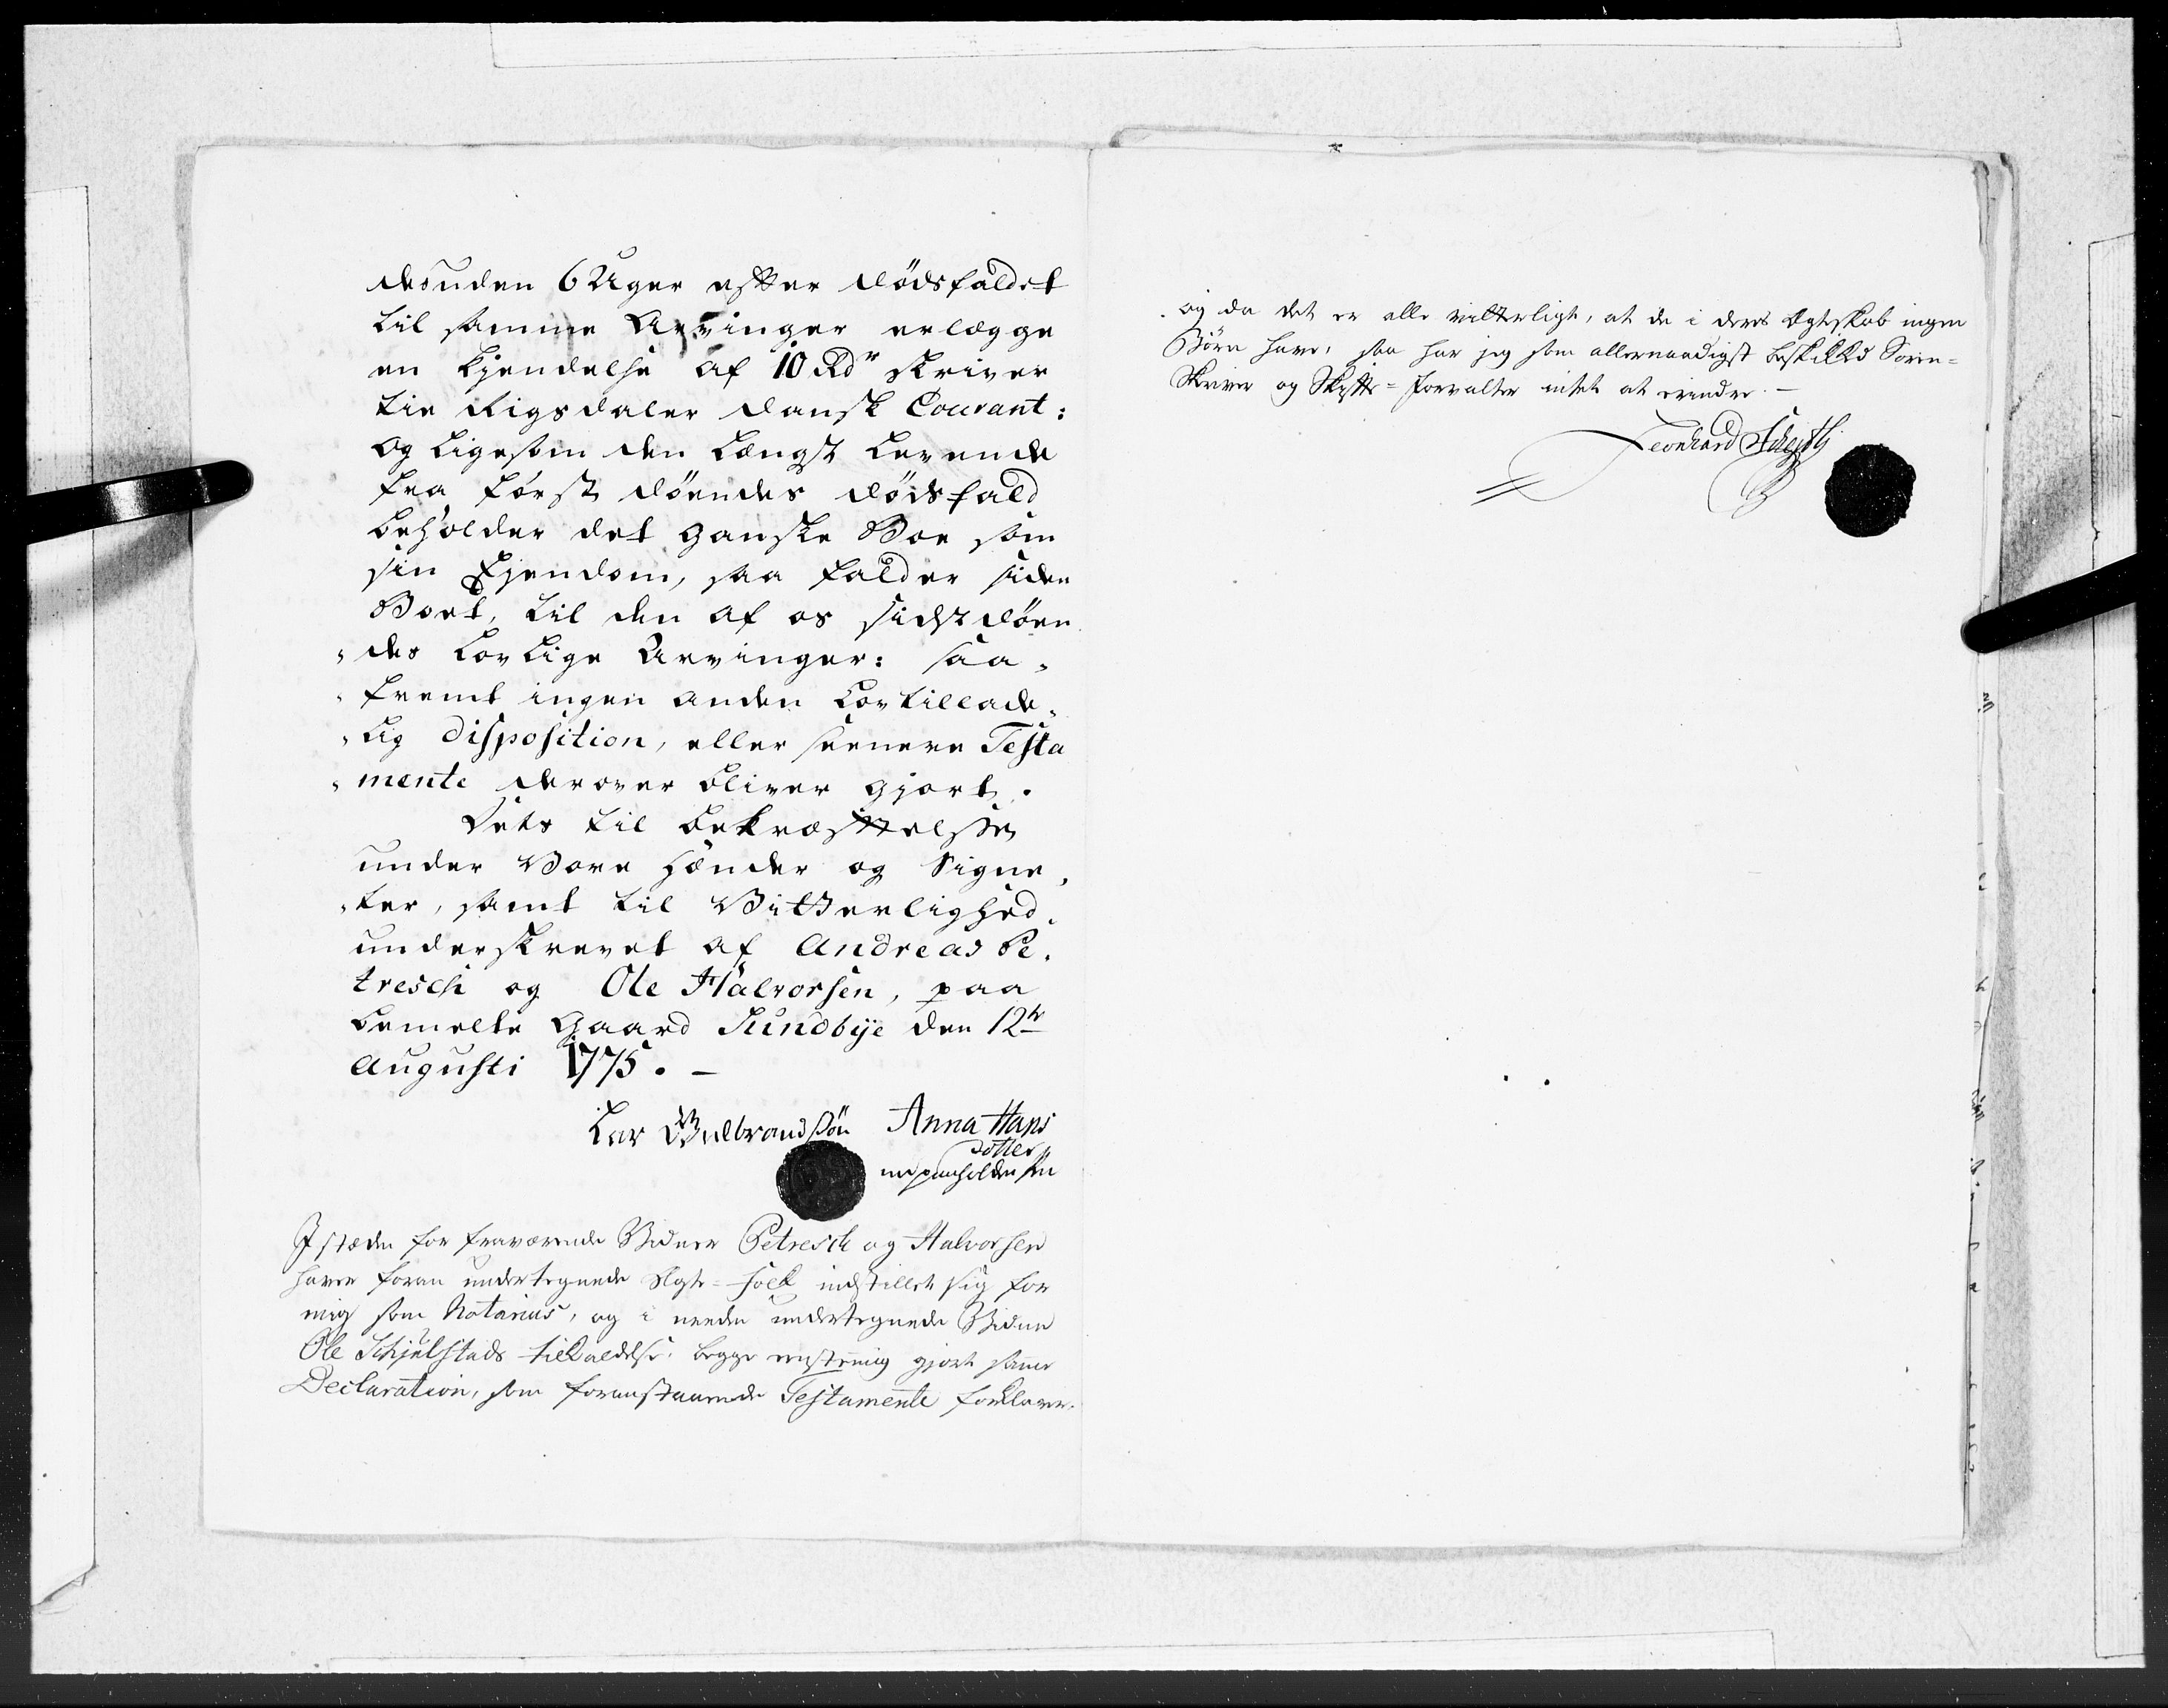 desuden 6 Uger efter Dødsfaldet
til samme Arvinger erlægge
en Kjendelse af 10 Rdr skriver
tie Rigsdaler Dansk Courant:
og ligesom den Længst Levende
fra først døendes Dødsfald
beholder det ganske Boe som
sin Ejendom, saa falder siden
Boet, til den af os sidst døen
des Lovlige Arvinger: saa-
fremt ingen anden Lovtillade-
lig Disposition, eller seenere Testa
mente derover bliver gjort.
Dets til Bekræftelse
under Vore Hænder og Signe-
ter, samt til Vitterlighed
underskrevet af Andreas Pe-
tresch og Ole Halvorsen, paa
bemelte Gaard Sundbye den 12te
Augusti 1775. -
Lar Gulbrandsøn Anna Hans
dotter
med paaholden Pen
I stæden for fraværende Vidner Petresch og Halvorsen
haver foran undertegnede Egte-Folk indstillet sig for
mig som Notarius, og i neden undertegnede Vidne
Ole Schjelstads tilkaldelse, begge eenstemig gjort samme
Declaration, som foranstaaende Testamente forklarer.
og da det er alle vitterligt, at de i deres Egteskab ingen
Børn have, saa har jeg som allernaadigst beskikked Soren-
skriver og Skifte-Forvalter intet at erindre. -
Leonhard